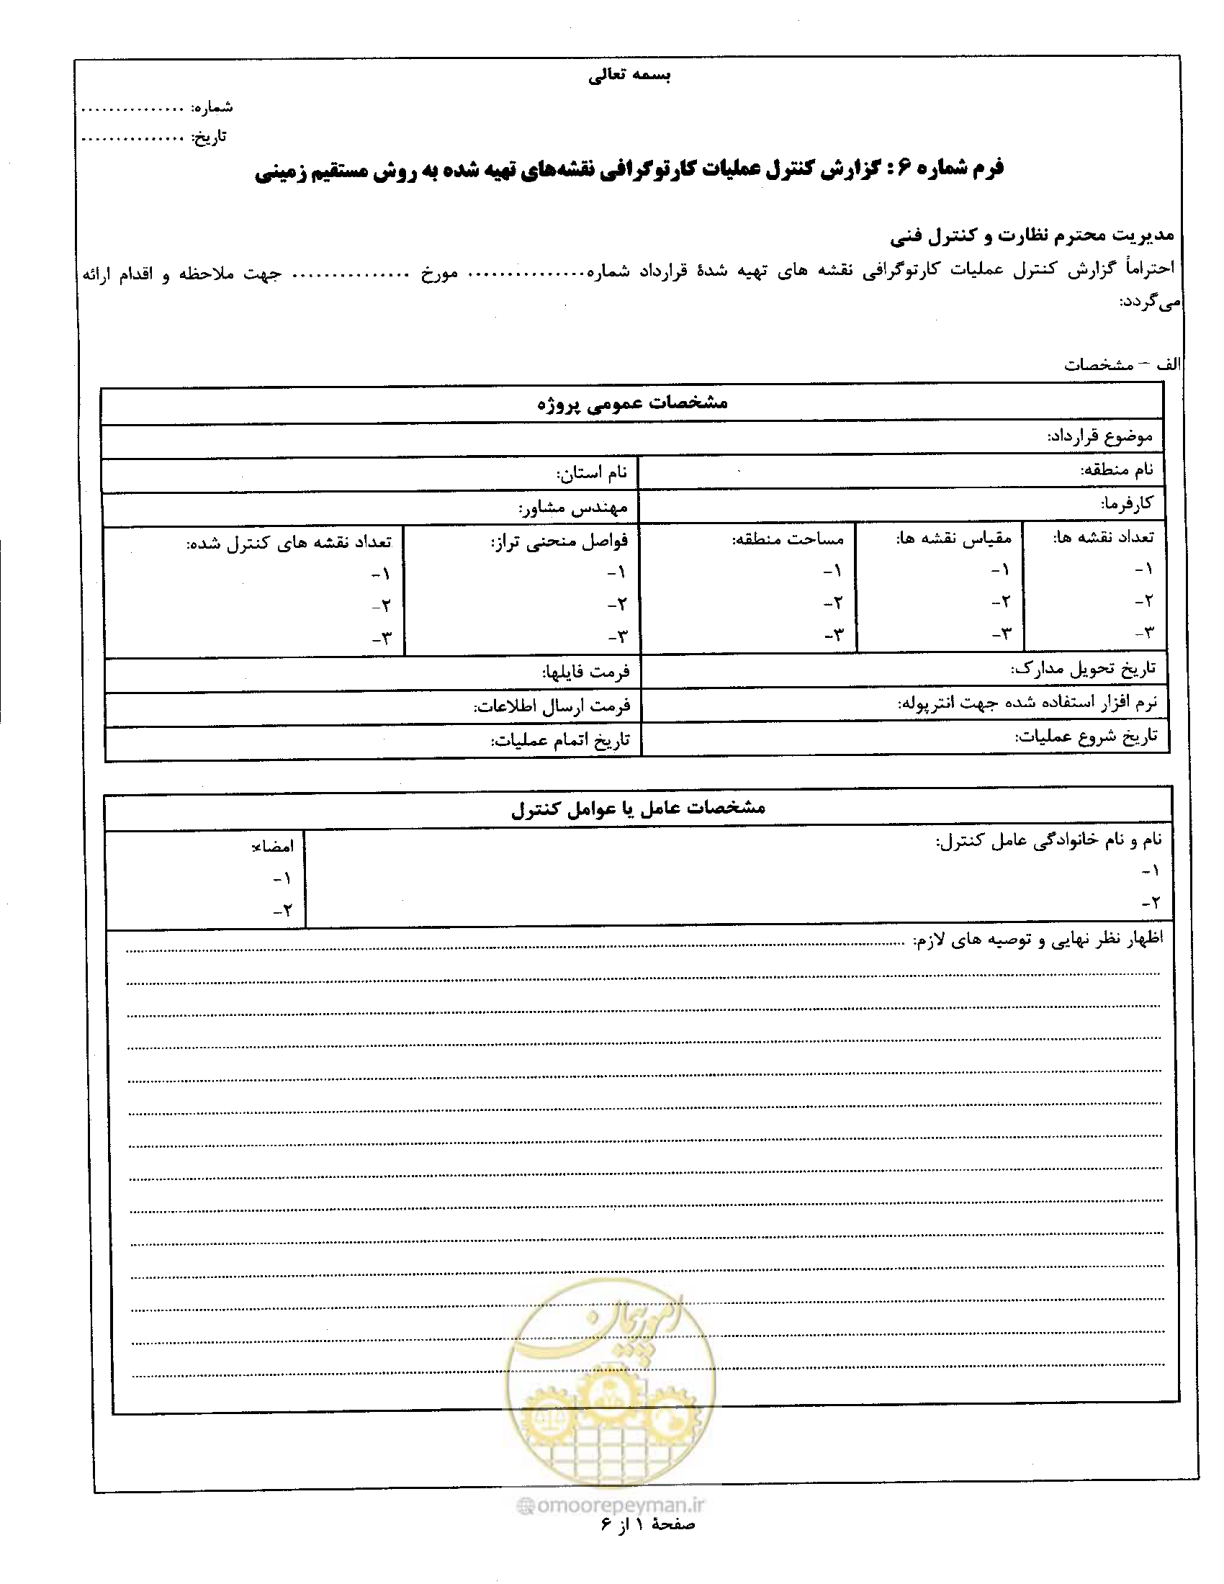 بسمه تعالی
شماره: ...............
تاریخ: ...............
فرم شماره ۶ : گزارش کنترل عملیات کارتوگرافی نقشه‌های تهیه شده به روش مستقیم زمینی
مدیریت محترم نظارت و کنترل فنی
احتراماً گزارش کنترل عملیات کارتوگرافی نقشه های تهیه شدهٔ قرارداد شماره............... مورخ ............... جهت ملاحظه و اقدام ارائه
می‌گردد:
الف – مشخصات
مشخصات عمومی پروژه
موضوع قرارداد:
نام منطقه: نام استان:
کارفرما: مهندس مشاور:
تعداد نقشه ها: مقیاس نقشه ها: مساحت منطقه: فواصل منحنی تراز: تعداد نقشه های کنترل شده:
۱- ۱- ۱- ۱- ۱-
۲- ۲- ۲- ۲- ۲-
۳- ۳- ۳- ۳- ۳-
تاریخ تحویل مدارک: فرمت فایلها:
نرم افزار استفاده شده جهت انترپوله: فرمت ارسال اطلاعات:
تاریخ شروع عملیات: تاریخ اتمام عملیات:
مشخصات عامل یا عوامل کنترل
نام و نام خانوادگی عامل کنترل: امضاء:
۱- ۱-
۲- ۲-
اظهار نظر نهایی و توصیه های لازم: ...............
امور پیمان
omoorepeyman.ir
صفحهٔ ۱ از ۶